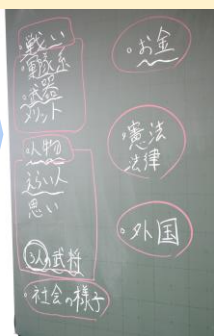 。戦い
。武器
メリット
。人物
えらい人
思い
3人の武将
。社会の様子
。お金
。憲法
法律
。外国